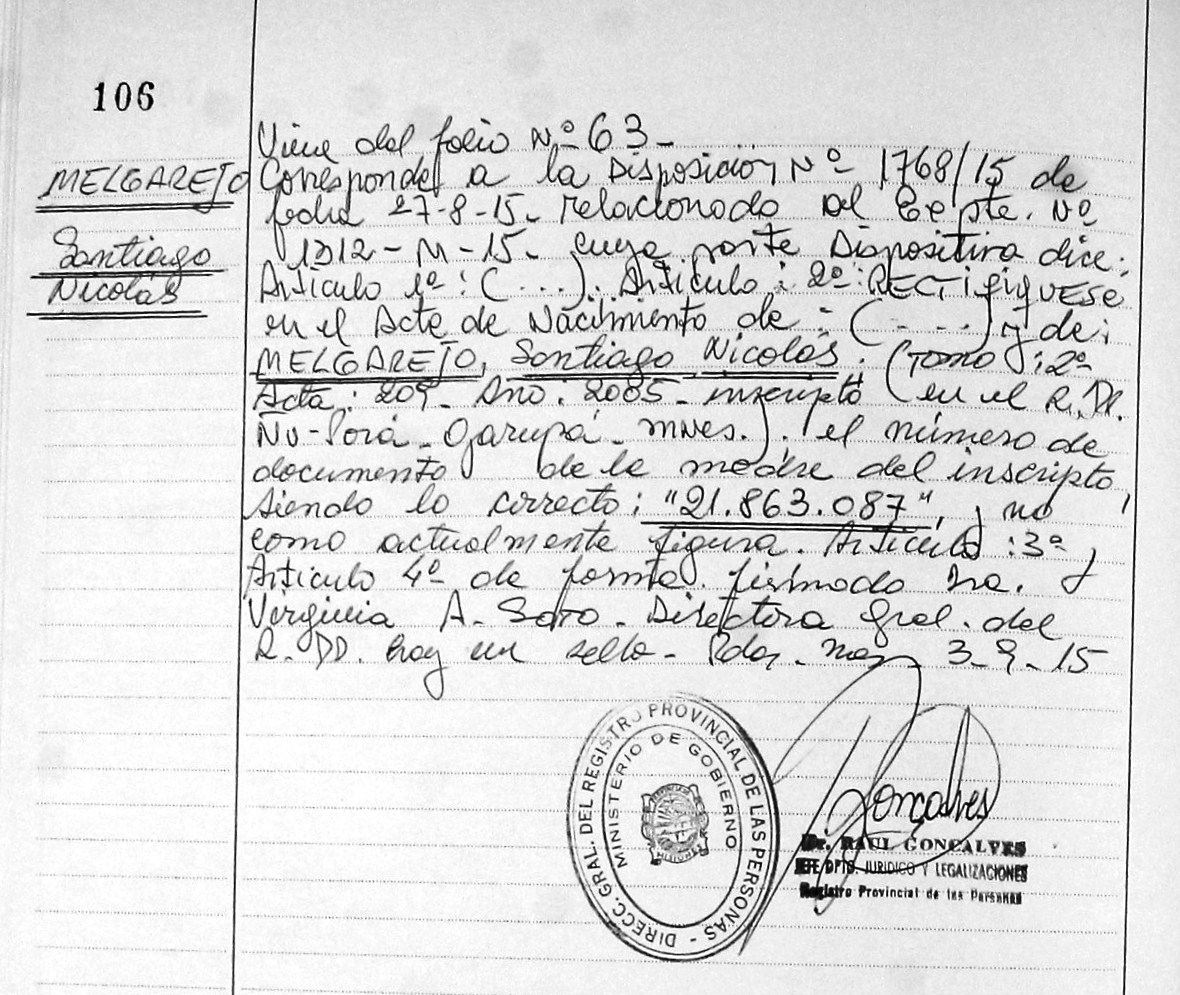 106
MELGAREJO
Santiago
Nicolás
Viene del folio Nº 63-
Corresponde a la Disposición Nº 1768/15 de
fecha 27-8-15- relacionado al Expte. Nº
1312-M-15- cuya parte Dispositiva dice:
Artículo 1º: (...). Artículo: 2º: RECTIFIQUESE
en el Acta de Nacimiento de: (----) y de:
MELGAREJO, Santiago Nicolás. (Tomo: 2º
Acta: 209- Año: 2005- inscripto en el R.P.
Ñu-Porá- Garupá- Mnes.). el número de
documento de la madre del inscripto,
siendo lo correcto: "21.863.087", y no
como actualmente figura. Artículo: 3º y
Artículo 4º de forma. firmado Dra.
Virginia A. Soto. Directora Gral. del
R.PP. hay un sello- Pdas. Mnes 3-9-15
DIRECC. GRAL. DEL REGISTRO PROVINCIAL DE LAS PERSONAS -
MINISTERIO DE GOBIERNO
MISIONES
Goncalves
Dr. RAUL GONCALVES
JEFE DPTO. JURIDICO Y LEGALIZACIONES
Registro Provincial de las Personas